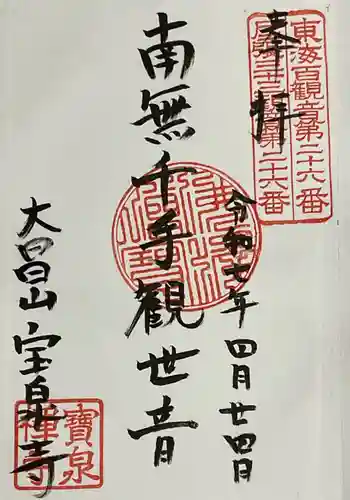 奉拝
東海百観音第二十六番
尾張三十三観音第二十六番
令和七年四月廿四日
南無千手観世音
大昌山宝泉寺
寳泉禅寺